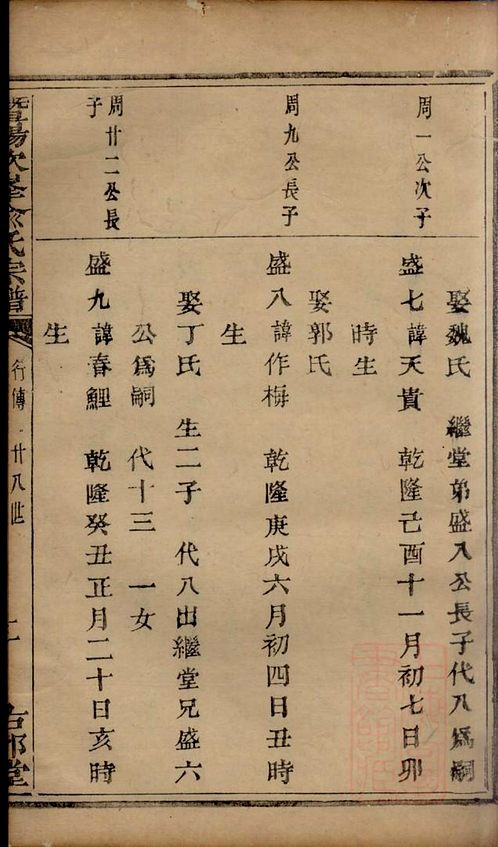 娶魏氏 繼堂弟盛八公長子代八爲嗣
周一公次子
盛七諱天貴 乾隆己酉十一月初七日卯
時生
娶郭氏
周九公長子
盛八諱作梅 乾隆庚戌六月初四日丑時
生
娶丁氏 生二子 代八出繼堂兄盛六
公爲嗣 代十三 一女
周廿二公長
子
盛九諱春鯉 乾隆癸丑正月二十日亥時
生
暨陽次峯俞氏宗譜
行傳 廿八世